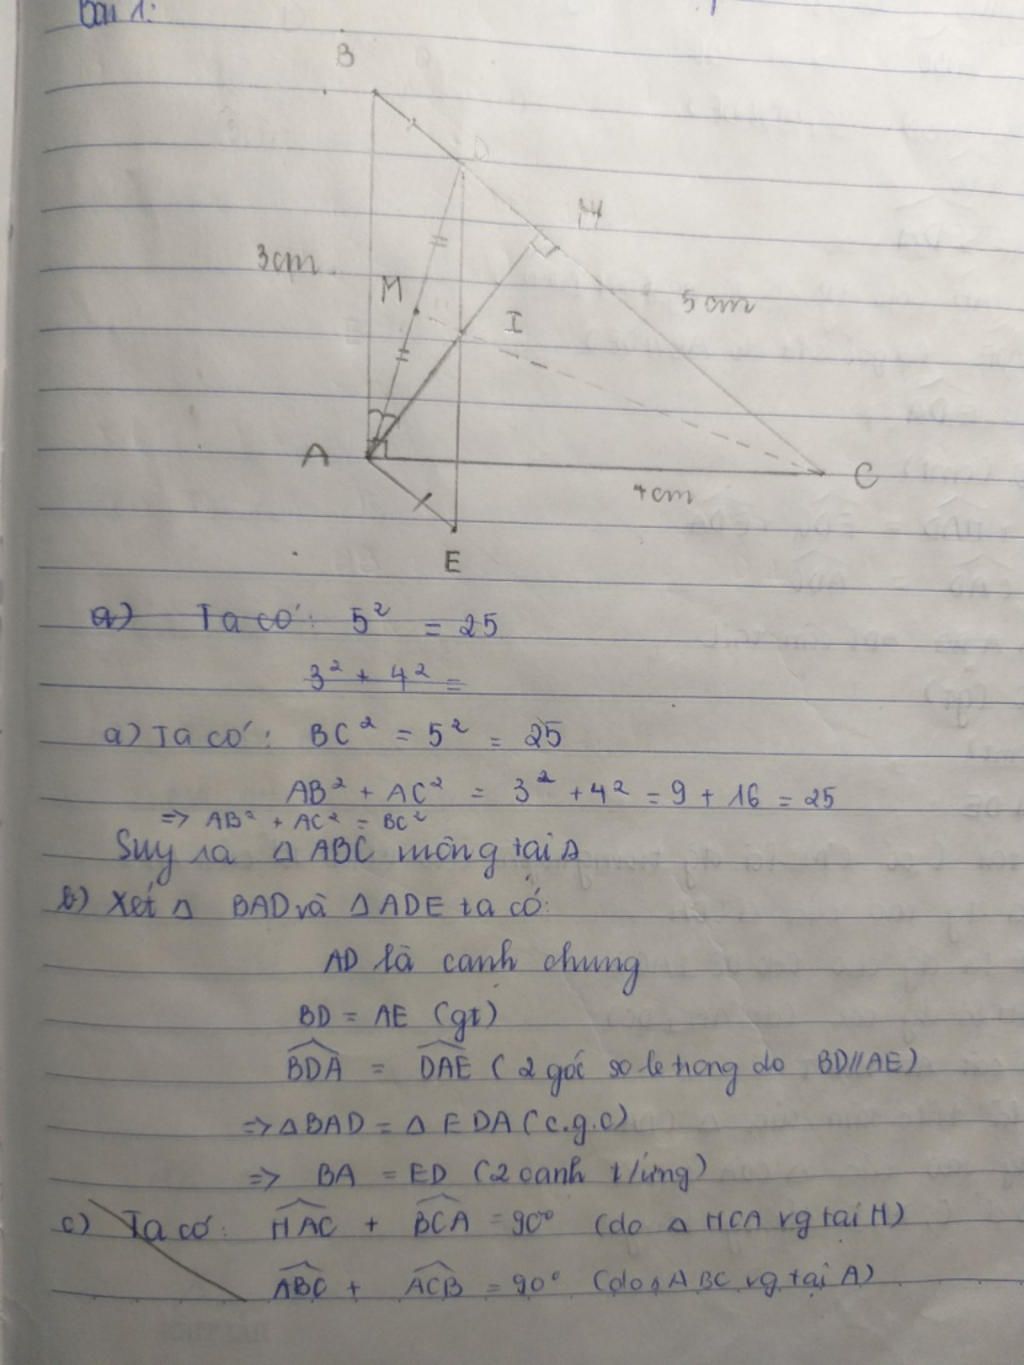 Bài 1:
B
D
H
3cm
M
5cm
I
A
C
4cm
E
a) Ta có: 5² = 25
3² + 4² =
a) Ta có: BC² = 5² = 25
AB² + AC² = 3² + 4² = 9 + 16 = 25
=> AB² + AC² = BC²
Suy ra Δ ABC mông tại A
b) Xét Δ BAD và Δ ADE ta có:
AD là cạnh chung
BD = AE (gt)
\widehat{BDA} = \widehat{DAE} (2 góc so le trong do BD//AE)
=> Δ BAD = Δ EDA (c.g.c)
=> BA = ED (2 cạnh t/ứng)
c) Ta có: \widehat{HAC} + \widehat{BCA} = 90° (do Δ HCA vg tại H)
\widehat{ABC} + \widehat{ACB} = 90° (do Δ ABC vg tại A)